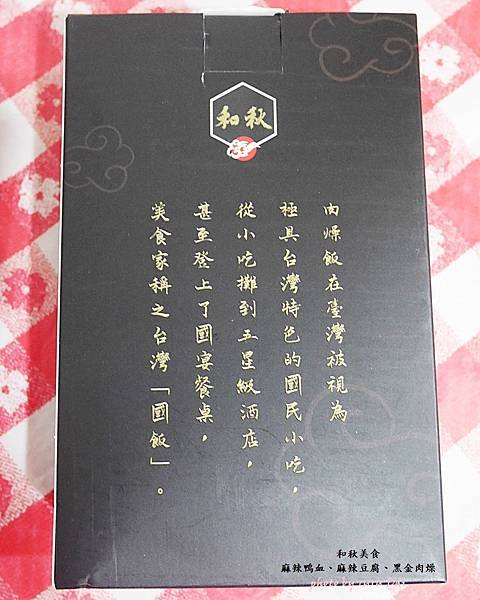 和秋
肉燥飯在臺灣被視為
極具台灣特色的國民小吃，
從小吃攤到五星級酒店，
甚至登上了國宴餐桌，
美食家稱之台灣「國飯」。
和秋美食
麻辣鴨血、麻辣豆腐、黑金肉燥